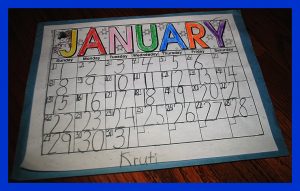 JANUARY
Sunday Monday Tuesday Wednesday Thursday Friday Saturday
1 2 3 4 5 6 7
8 9 10 11 12 13 14
15 16 17 18 19 20 21
22 23 24 25 26 27 28
29 30 31
Kruti